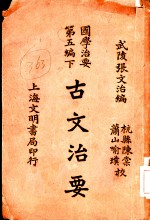 武陵張文治編
杭縣陳棠
蕭山喻璞 校
古文治要
國學治要
第五編下
上海文明書局印行
363